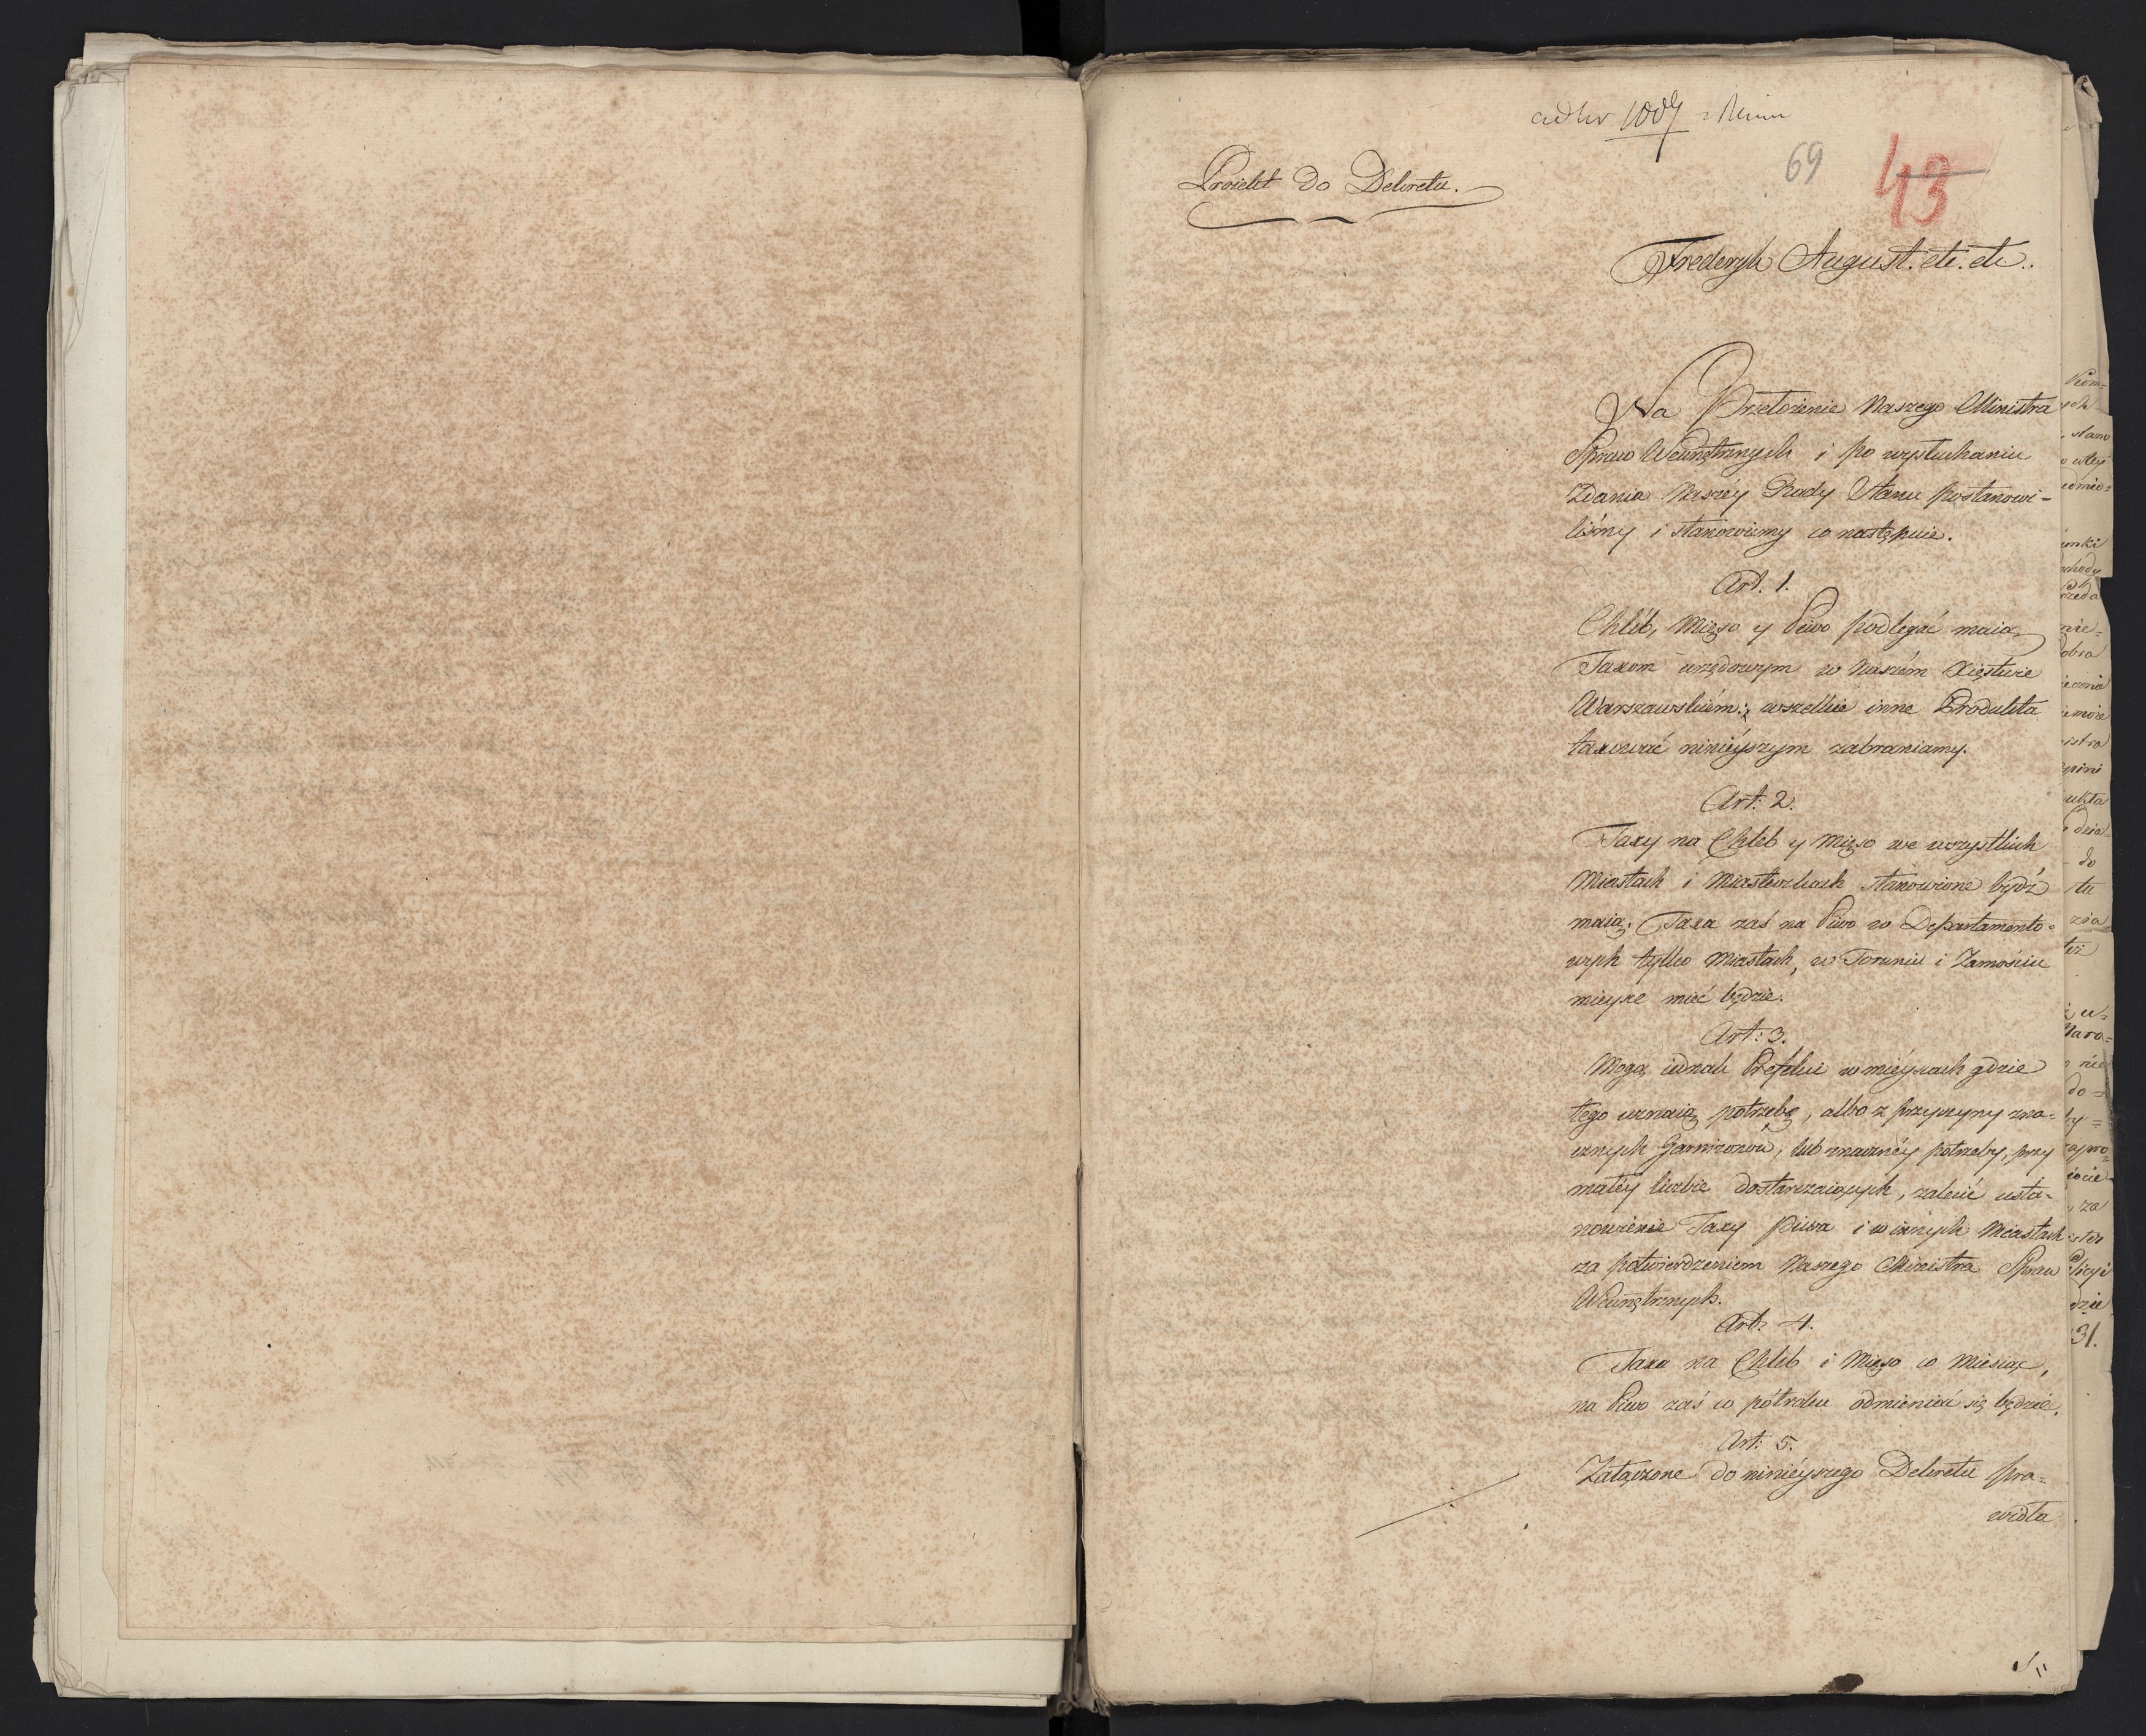 ad Nr 1009
69
43
Proiekt do Dekretu.
Frederyk August. etc. etc.
Na Przełożenie Naszego Ministra
Spraw Wewnętrznych i po wysłuchaniu
Zdania Naszéy Rady Stanu postanowi-
liśmy i stanowiemy co następuie.
Art. 1.
Chléb, Mięso y Piwo podlegać maią
Taxom urzędowym w Naszém Xięstwie
Warszawskiém; wszelkie inne Produkta
taxować ninieyszym zabraniamy.
Art: 2.
Taxy na Chleb y Mięso we wszystkich
Miastach i Miasteczkach stanowione bydź
maią. Taxa zaś na Piwo w Departamento=
wych tylko Miastach, w Toruniu i Zamościu
mieysce mieć będzie.
Art: 3.
Mogą iednak Prefekci w mieyscach gdzie
tego uznaią potrzebę, albo z przyczyny zna=
cznych Garnizonow, lub znacznéy potrzeby, przy
małéy liczbie dostarczaiących, zalecić usta=
nowienie Taxy piwa i w innych Miastach
za potwierdzeniem Naszego Ministra Spraw
Wewnętrznych.
Art: 4.
Taxa na Chleb i Mięso co miesiąc,
na Piwo zaś co półroku odmieniać się będzie.
Art: 5.
Załączone do ninieyszego Dekretu pra=
widła